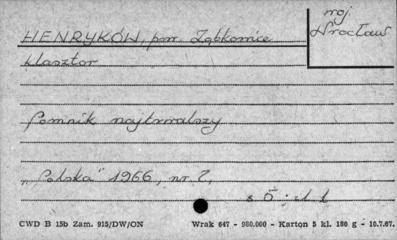 woj
HENRYKÓW, pow. Ząbkowice
Wrocław
klasztor
Pomnik najtrwalszy
"Polska" 1966, nr 7,
s 5; il 1
CWD B 15b Zam. 915/DW/ON Wrak 647 - 980.000 - Karton 5 kl. 180 g - 10.7.67.